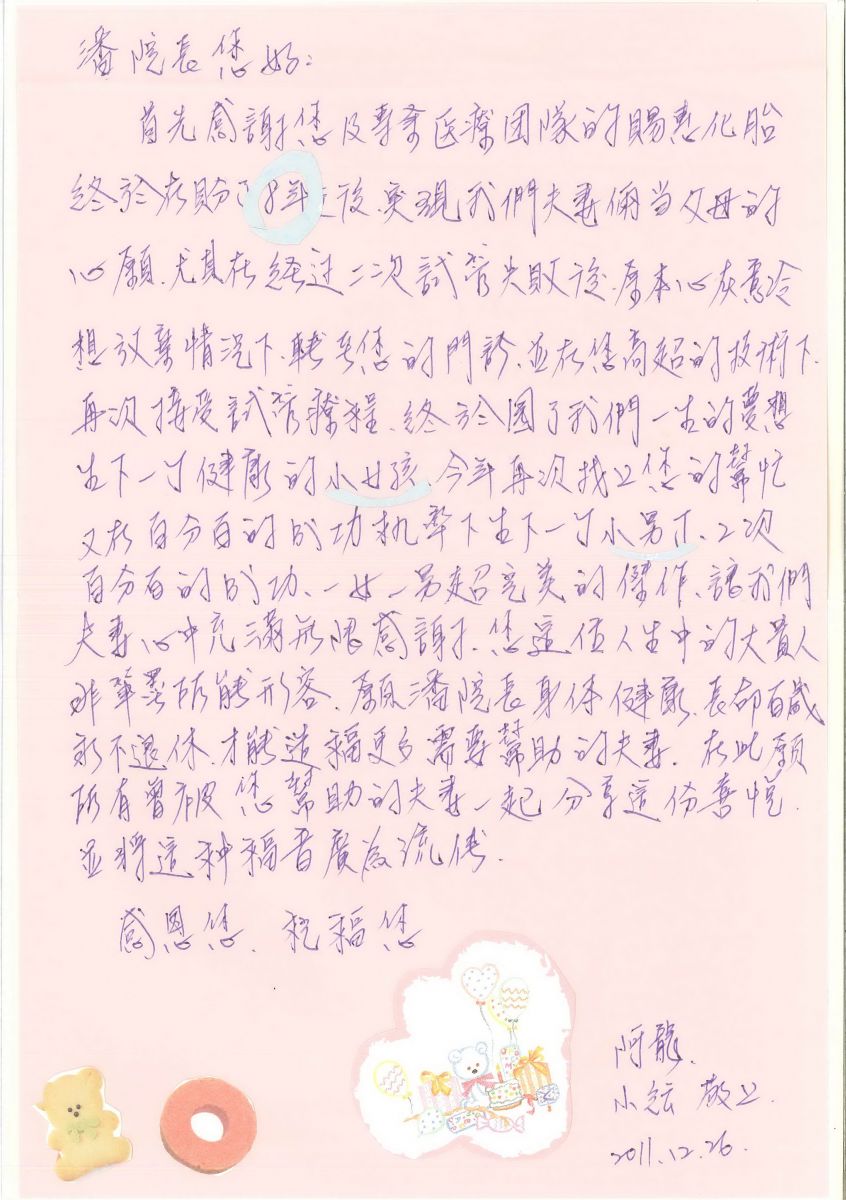 潘院長您好:
首先感謝您及專業医療团隊的賜惠化胎
終於在盼了8年之後、実現我們夫妻倆當父母的
心願、尤其在経过二次試管失敗後、原本心灰意冷
想放棄情況下、轉至您的門診、並在您高超的技術下、
再次接受試管療程、終於圓了我們一生的夢想
生下一个健康的小女孩、今年再次找上您的幫忙
又在百分百的成功机率下生下一个小男丁、2次
百分百的成功、一女一男超完美的傑作、讓我們
夫妻心中充滿無限感謝、您這位人生中的大貴人
非筆墨所能形容、願潘院長身体健康、長命百歲
永不退休、才能造福更多需要幫助的夫妻、在此願
所有曾被您幫助的夫妻一起分享這份喜悅、
並將這种福音廣為流传、
感恩您、祝福您
阿龍、
小 敬上、
2011.12.26.